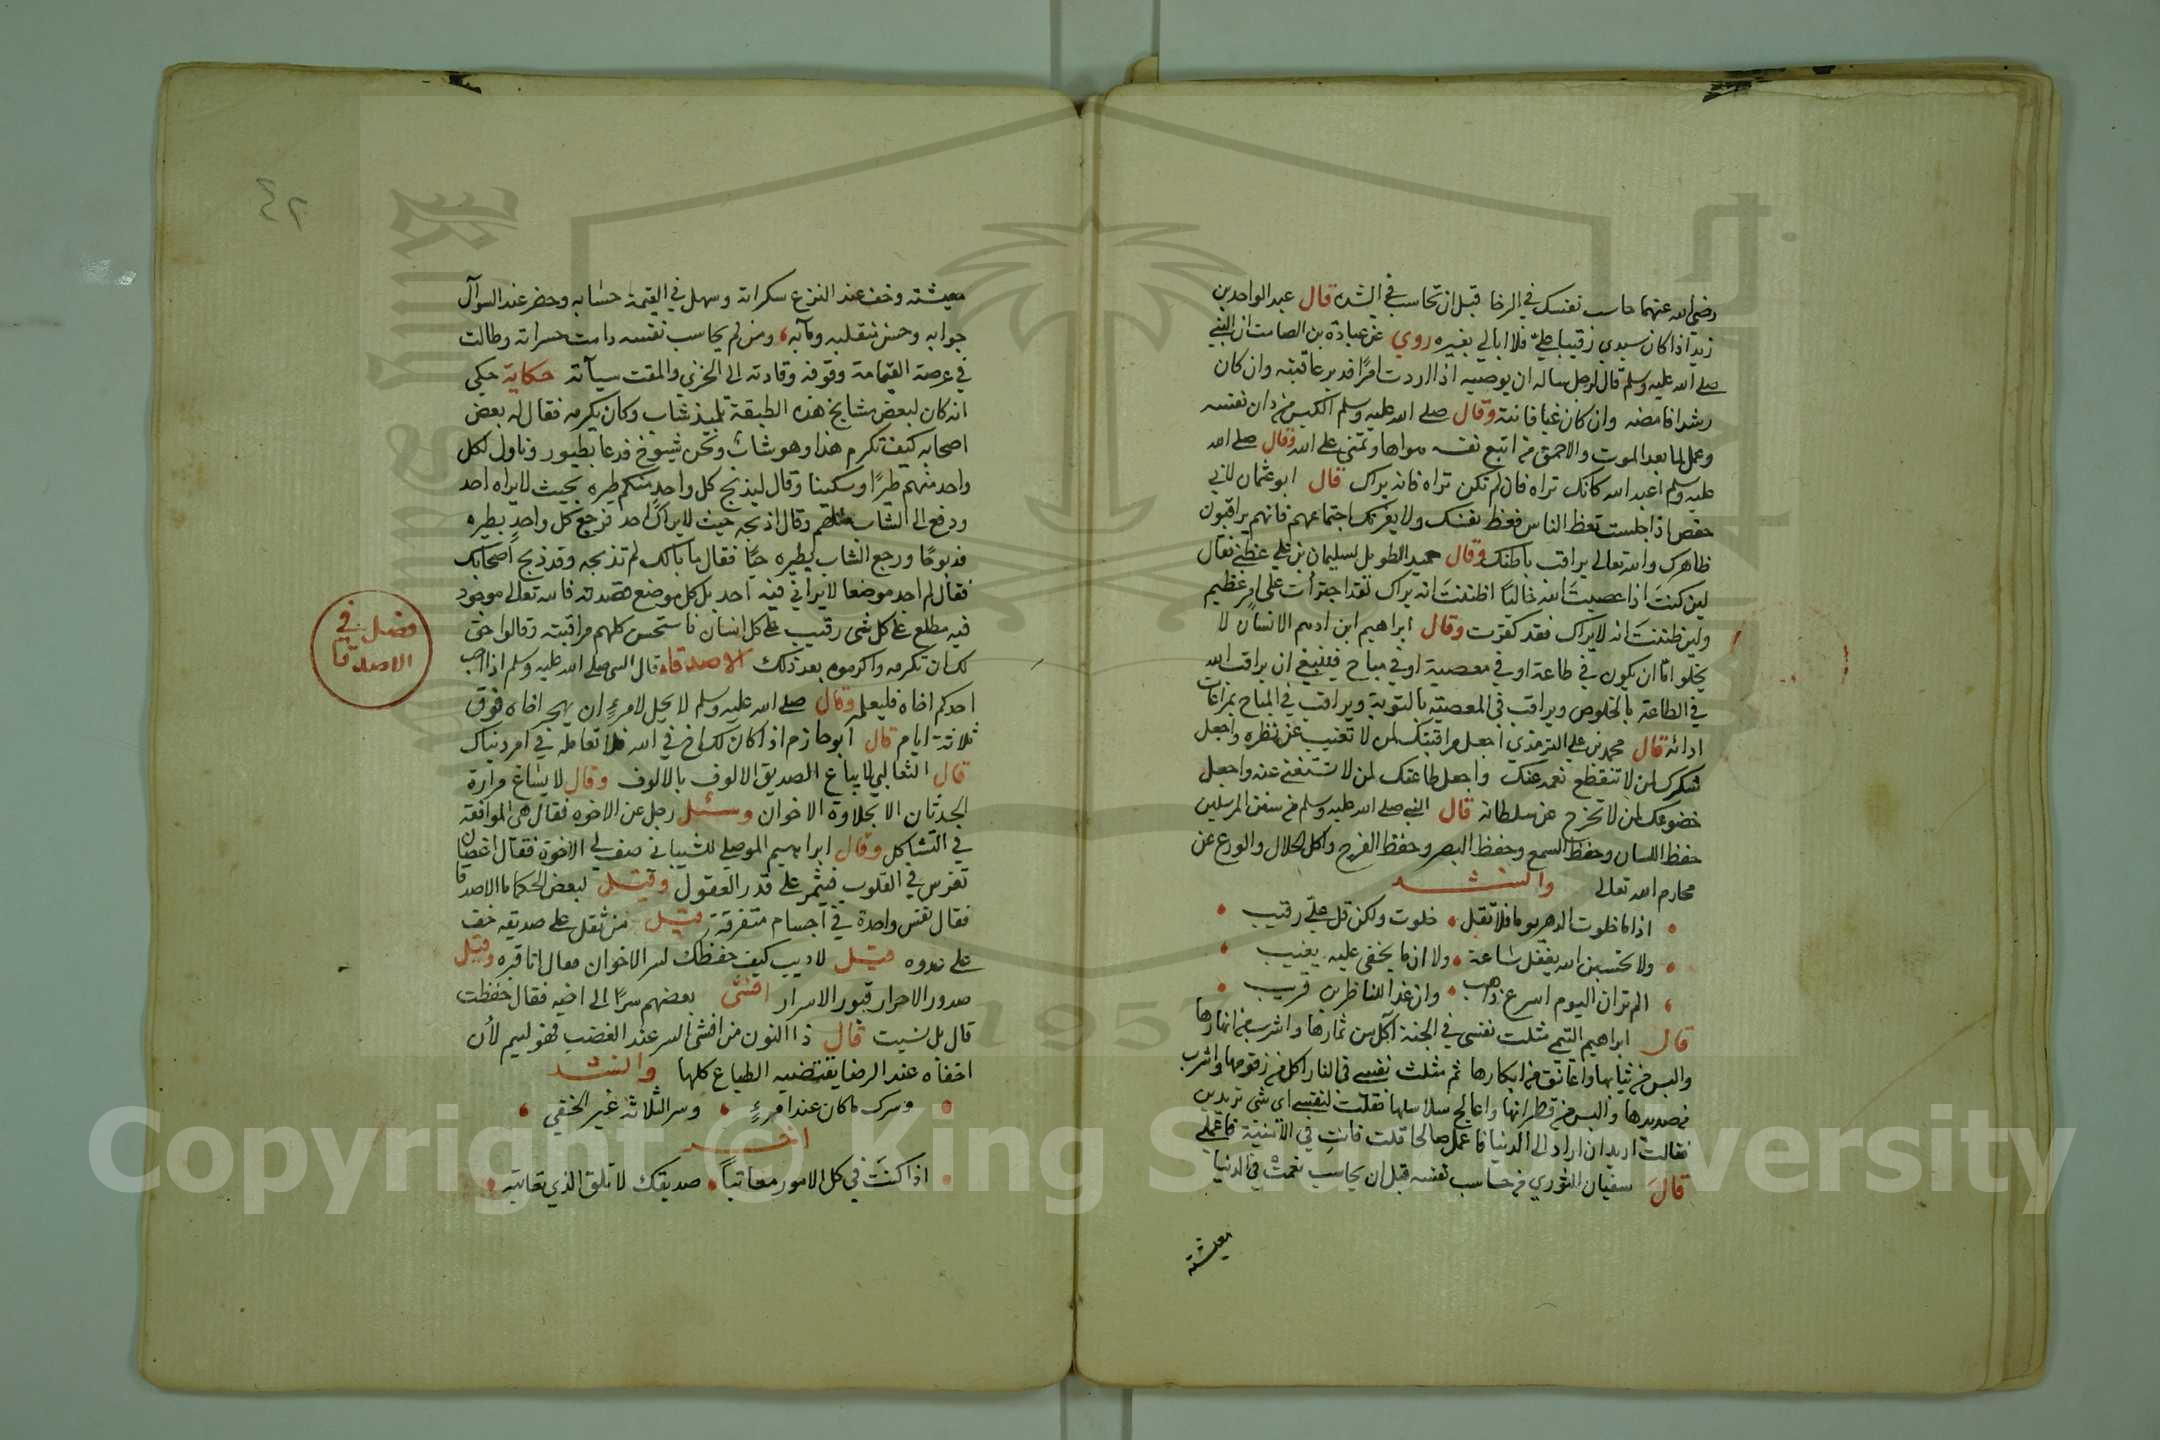 رضي الله عنهما حاسب نفسك في الرخا قبل ان تحاسب في الشده قال عبد الواحد بن
زيد اذا كان سيدي رقيبا علي فلا ابالي بغيره روي عن عبادة بن الصامت ان النبي
صلى الله عليه وسلم قال لرجل ساله ان يوصيه اذا اردت امرًا فدبر عاقبته وان كان
رشدا فامضه وان كان غيا فانته وقال صلى الله عليه وسلم الكيس من دان نفسه
وعمل لما بعد الموت والاحمق من اتبع نفسه هواها وتمنى على الله وقال صلى الله
عليه وسلم اعبد الله كانك تراه فان لم تكن تراه فانه يراك قال ابو عثمان لابي
حفص اذا جلست تعظ الناس فعظ نفسك ولا يغرنك اجتماعهم فانهم يراقبون
ظاهرك والله تعالى يراقب باطنك وقال حميد الطويل لسليمان بن علي عظني فقال
لين كنت اذا عصيت الله خاليًا اظننت انه يراك لقد اجترأت على امرٍ عظيم
ولين ظننت انه لا يراك فقد كفرت وقال ابراهيم ابن ادهم الانسان لا
يخلوا اما ان يكون في طاعة او في معصية او في مباح فينبغي ان يراقب الله
في الطاعة بالخلوص ويراقب في المعصية بالتوبة ويراقب في المباح بمراعات
ادائه قال محمد بن علي الترمذي اجعل مراقبتك لمن لا تغيب عن نظره واجعل
شكرك لمن لا تنقطع نعمه عنك واجعل طاعتك لمن لا تستغني عنه واجعل
خضوعك لمن لا تخرج عن سلطانه قال النبي صلى الله عليه وسلم من سنن المرسلين
حفظ اللسان وحفظ السمع وحفظ البصر وحفظ الفرج واكل الحلال والورع عن
محارم الله تعالى وانشد
اذا ما خلوت الدهر يوما فلا تقل • خلوت ولكن قل علي رقيب
ولا تحسبن الله يغفل ساعة • ولا ان ما يخفى عليه يغيب
الم تر ان اليوم اسرع ذاهب • وان غدا للناظرين قريب
قال ابراهيم التيمي مثلت نفسي في الجنة آكل من ثمارها واشرب من انهارها
والبس من ثيابها واعانق من ابكارها ثم مثلت نفسي في النار اكل من زقومها واشرب
من صديدها والبس من قطرانها واعالج سلاسلها فقلت لنفسي اي شي تريدين
فقالت اريد ان اراد الى الدنيا فاعمل صالحا قلت فانت في الامنية فاعملي
قال سفيان الثوري من حاسب نفسه قبل ان يحاسب نعمت في الدنيا
معيشته
٤٢
معيشته وخف عند النزع سكراته وسهل في القيمة حسابه وحضر عند السوآل
جوابه وحسن منقلبه ومآبه ومن لم يحاسب نفسه دامت حسراته وطالت
في عرصة القيامة وقوفه وقادته الى الخزي والمقت سيآته حكاية حكي
انه كان لبعض مشايخ هذه الطبقة تلميذ شاب وكان يكرمه فقال له بعض
اصحابه كيف تكرم هذا وهو شاب ونحن شيوخ فدعا بطيور وناول لكل
واحد منهم طيرًا وسكينا وقال ليذبح كل واحد منكم طيره بحيث لا يراه احد
ودفع الى الشاب وقال اذبحه حيث لا يراك احد فرجع كل واحد بطيره
مذبوحًا ورجع الشاب بطيره حيًا فقال ما بالك لم تذبحه وقد ذبح اصحابك
فقال لم اجد موضعا لا يراني فيه احد بل كل موضع قصدته فالله تعالى موجود
فيه مطلع على كل شي رقيب على كل انسان فاستحسن كلهم مراقبته وقالوا حق
لك ان تكرمه واكرموه بعد ذلك الاصدقاء قال النبي صلى الله عليه وسلم اذا احب
فصل في
الاصدقا
احدكم اخاه فليعلمه وقال صلى الله عليه وسلم لا يحل لامرءٍ ان يهجر اخاه فوق
ثلاثة ايام قال ابو حازم اذا كان لك اخ في الله فلا تعامله في امر دنياك
قال الثعالبي لا يباع الصديق الالوف بالالوف وقال لا يساغ مرارة
الحدثان الا بحلاوة الاخوان وسئل رجل عن الاخوه فقال هي الموافقة
في التشاكل وقال ابراهيم الموصلي للشيباني صف لي الاخوة فقال اغصان
تغرس في القلوب فتثمر على قدر العقول وقيل لبعض الحكما ما الاصدقا
فقال نفس واحدة في اجسام متفرقة قيل من ثقل على صديقه خف
على عدوه قيل لاديب كيف حفظك لسر الاخوان فقال انا قبره وقيل
صدور الاحرار قبور الاسرار افشى بعضهم سرًا الى اخيه فقال حفظت
قال بل نسيت قال ذا النون من افشى السر عند الغضب فهو لئيم لأن
اخفاه عند الرضا يقتضيه الطباع كلها وانشد
وسرك ما كان عند امرءٍ • وسر الثلاثة غير الخفي
اخر
اذا كنت في كل الامور معاتباً • صديقك لا تلق الذي تعاتبه
Copyright © King Saud University
1957